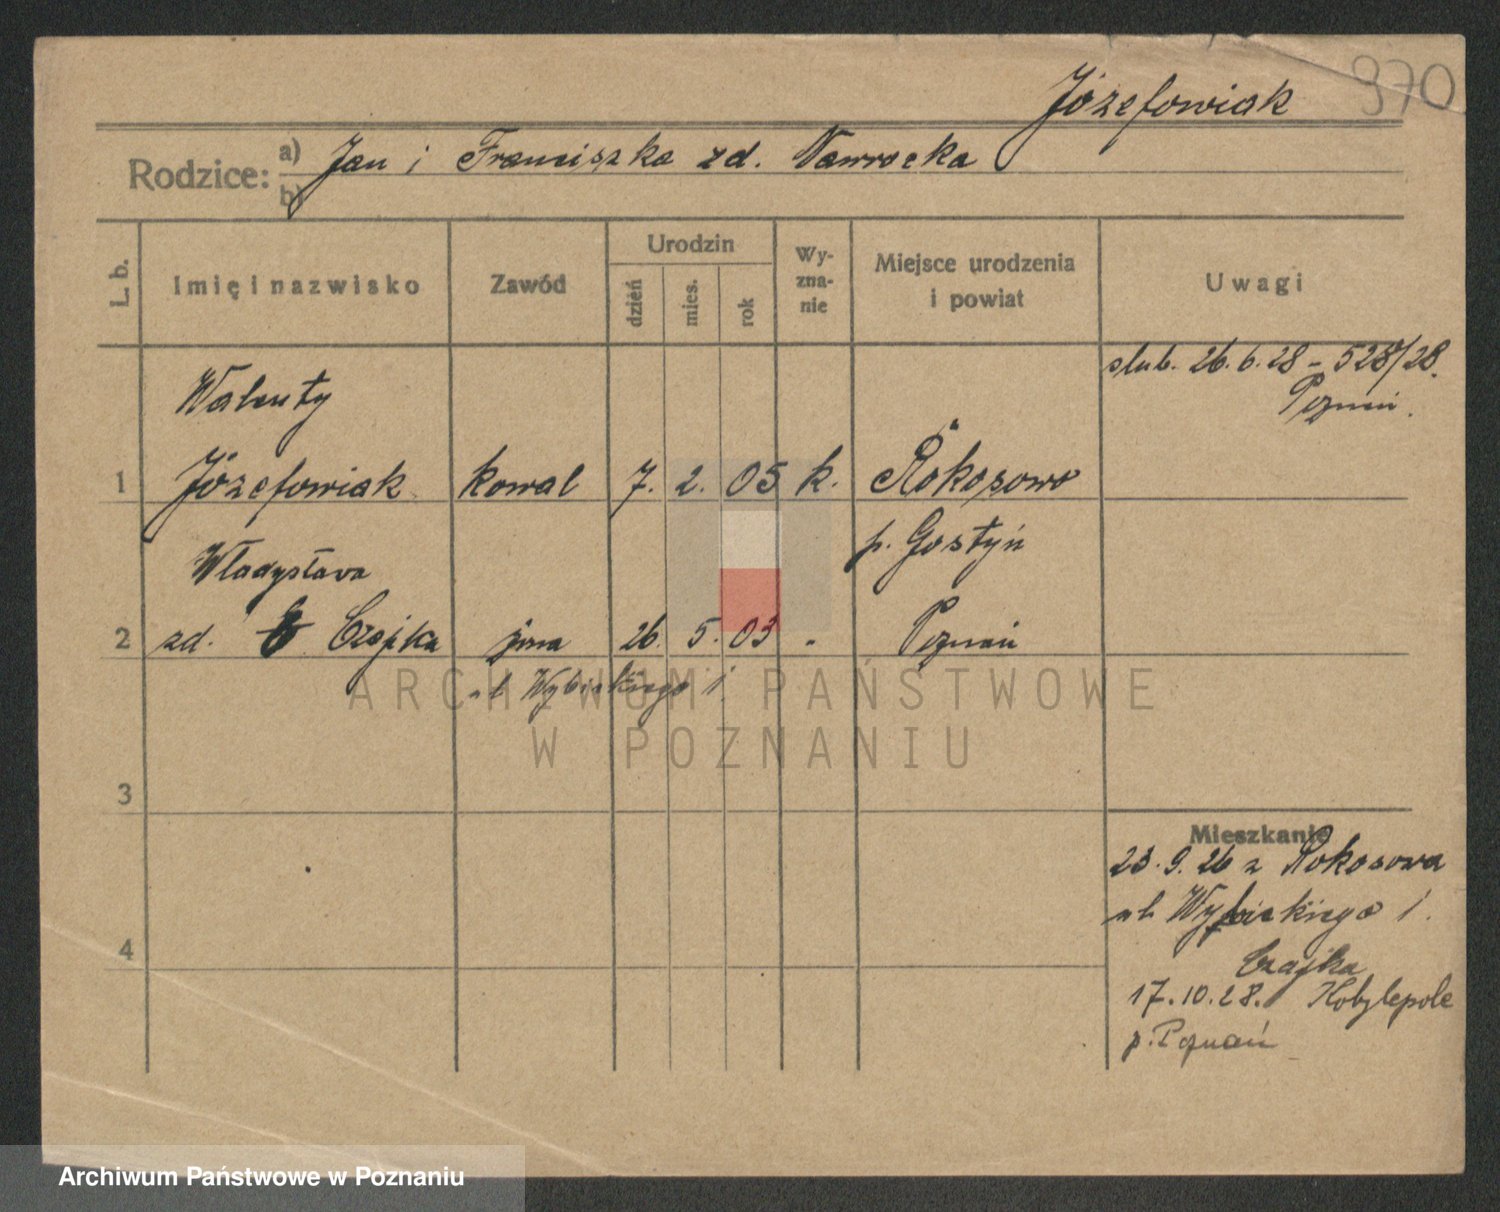 Józefowiak 970
Rodzice: a) Jan i Franciszka zd. Nawrocka
b)
L. b. Imię i nazwisko Zawód Urodzin dzień mies. rok Wyznanie Miejsce urodzenia i powiat Uwagi
ślub. 26.6.28 - 528/28.
Poznań.
Walenty
1 Józefowiak kowal 7. 2. 05 k. Rokosowo
p. Gostyń
Władysława
2 zd. Czajka żona 26. 5. 03 " Poznań
ul Wybickiego 1
ARCHIWUM PAŃSTWOWE
W POZNANIU
3
Mieszkanie
23.9.26 z Rokosowa
ul Wybickiego 1.
4
Czajka
17.10.28. Kobylepole
p. Poznań
Archiwum Państwowe w Poznaniu